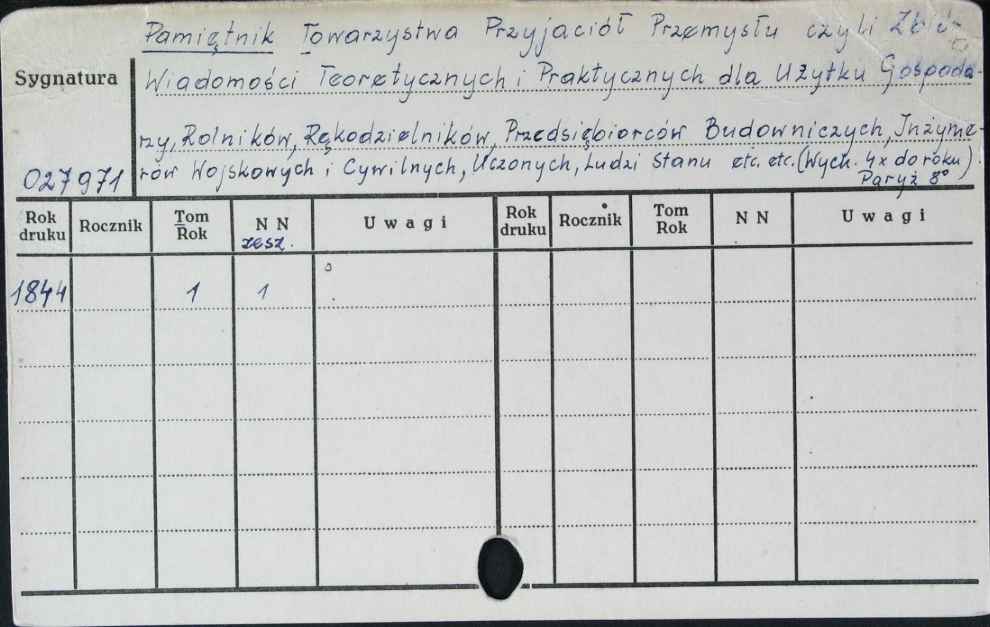 Pamiętnik Towarzystwa Przyjaciół Przemysłu czyli Zbiór
Sygnatura
Wiadomości Teoretycznych i Praktycznych dla Użytku Gospoda-
rzy, Rolników, Rękodzielników, Przedsiębiorców Budowniczych, Inżynie-
rów Wojskowych i Cywilnych, Uczonych, Ludzi Stanu etc. etc. (Wych. 4x do roku).
027971
Paryż 8°
Rok druku Rocznik Tom Rok N N zesz. Uwagi Rok druku Rocznik Tom Rok N N Uwagi
1844 1 1